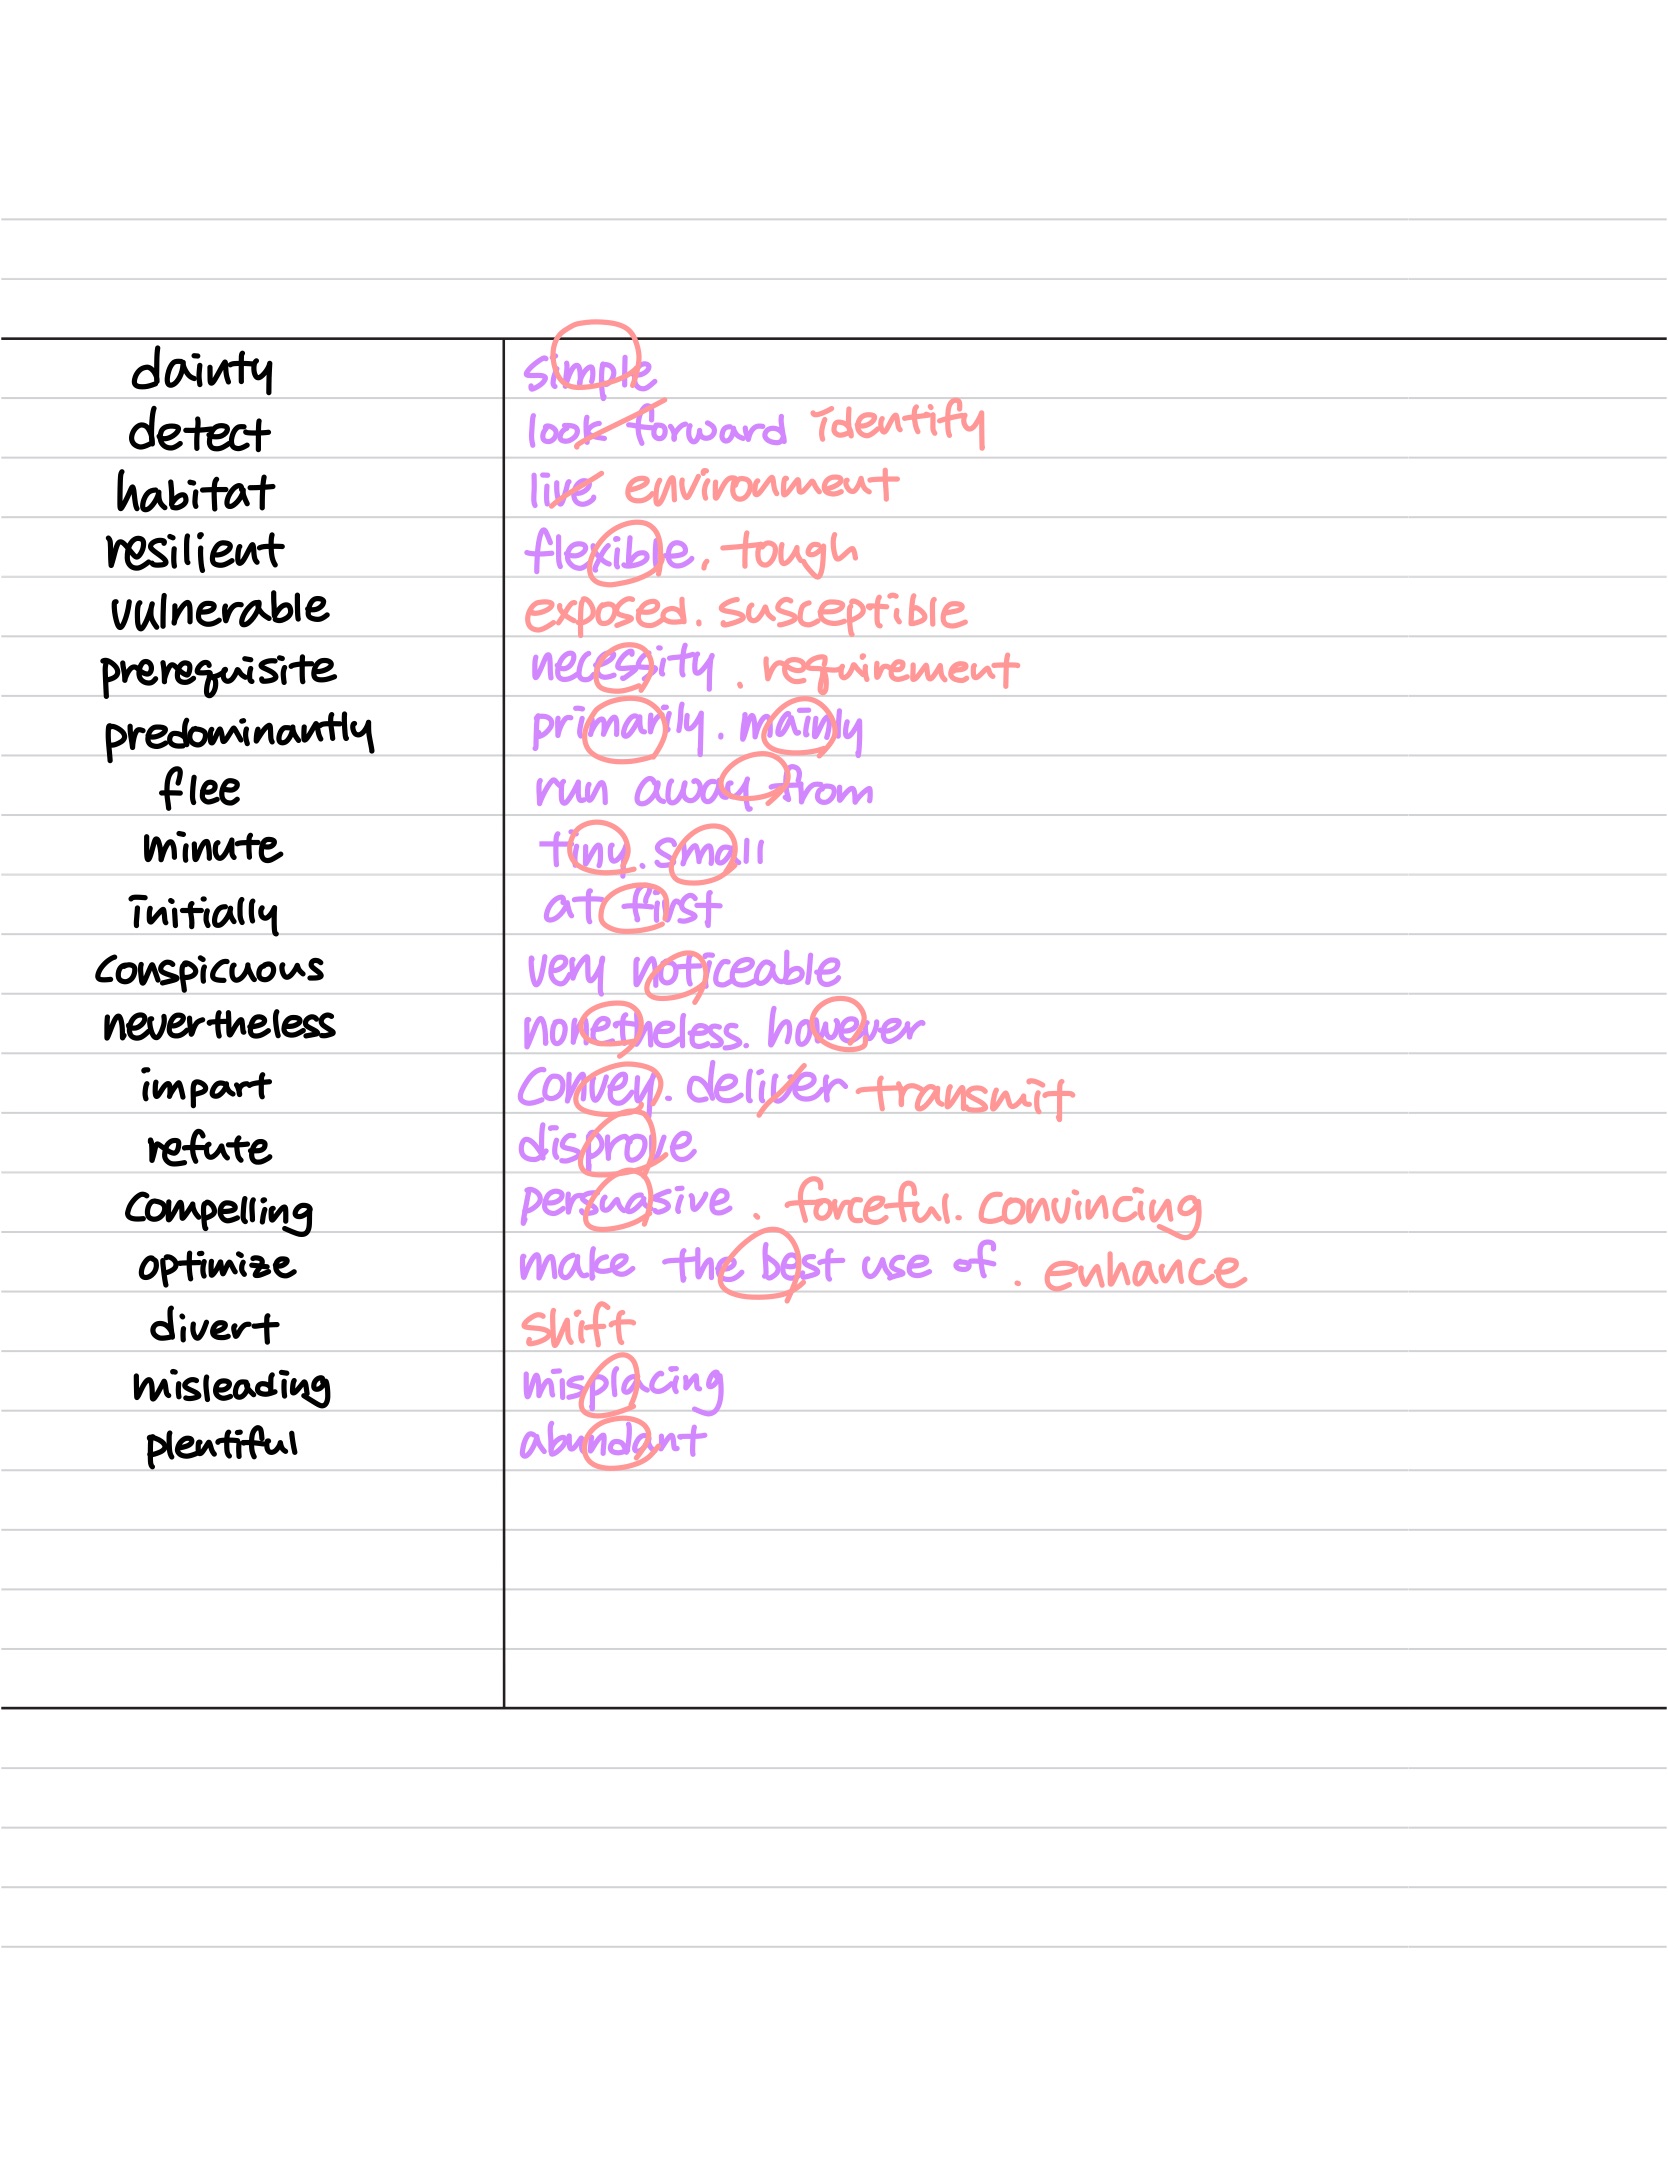 dainty simple
detect look forward identify
habitat live environment
resilient flexible, tough
vulnerable exposed. susceptible
prerequisite necessity. requirement
predominantly primarily. mainly
flee run away from
minute tiny. small
initially at first
conspicuous very noticeable
nevertheless nonetheless. however
impart convey. deliver transmit
refute disprove
compelling persuasive. forceful. convincing
optimize make the best use of. enhance
divert shift
misleading misplacing
plentiful abundant